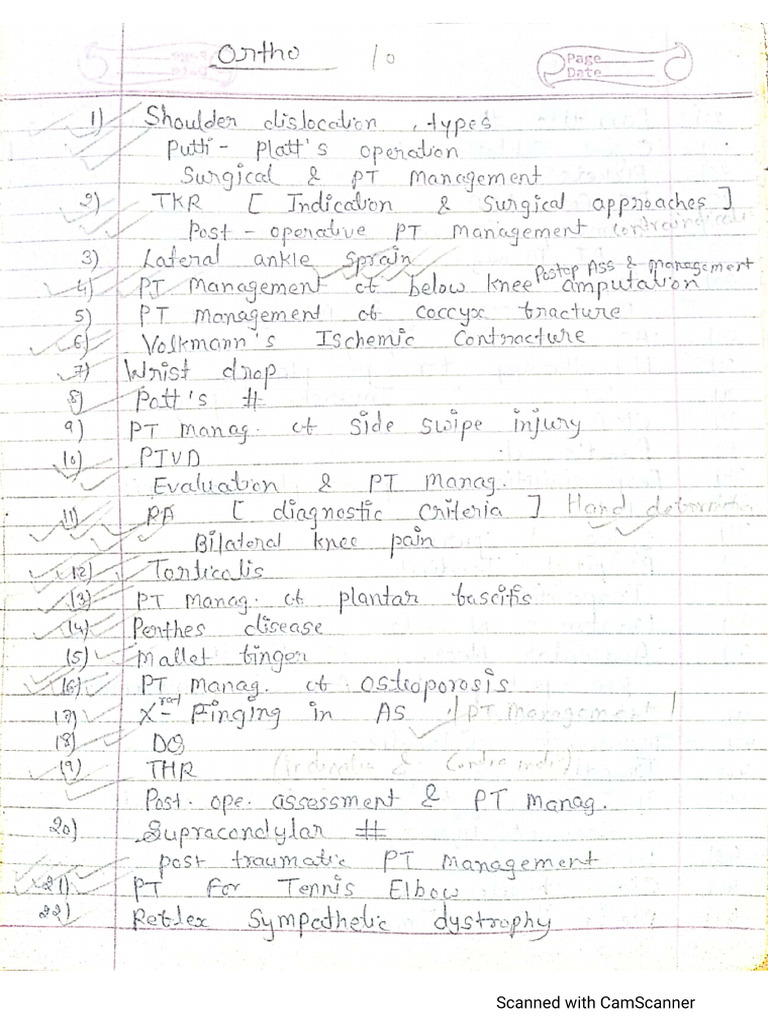 Ortho 10
Page
Date
1) Shoulder dislocation, types
Putti - Platt's operation
Surgical & PT Management
2) TKR [ Indication & Surgical approaches ]
Post - operative PT Management
3) Lateral ankle sprain
Postop Ass & Management
4) PT Management of below knee amputation
5) PT Management of coccyx fracture
6) Volkmann's Ischemic Contracture
7) Wrist drop
8) Pott's #
9) PT manag. of side swipe injury
10) PIVD
Evaluation & PT Manag.
11) RA [ diagnostic criteria ] Hand
Bilateral knee pain
12) Torticalis
13) PT Manag. of plantar fascitis
14) Perthes disease
15) Mallet finger
16) PT Manag. of Osteoporosis
17) X-ray Finging in AS | PT Management |
18) DQ
19) THR
Post. ope. assessment & PT Manag.
20) Supracondylar #
post traumatic PT Management
21) PT For Tennis Elbow
22) Reflex Sympathetic dystrophy
Scanned with CamScanner